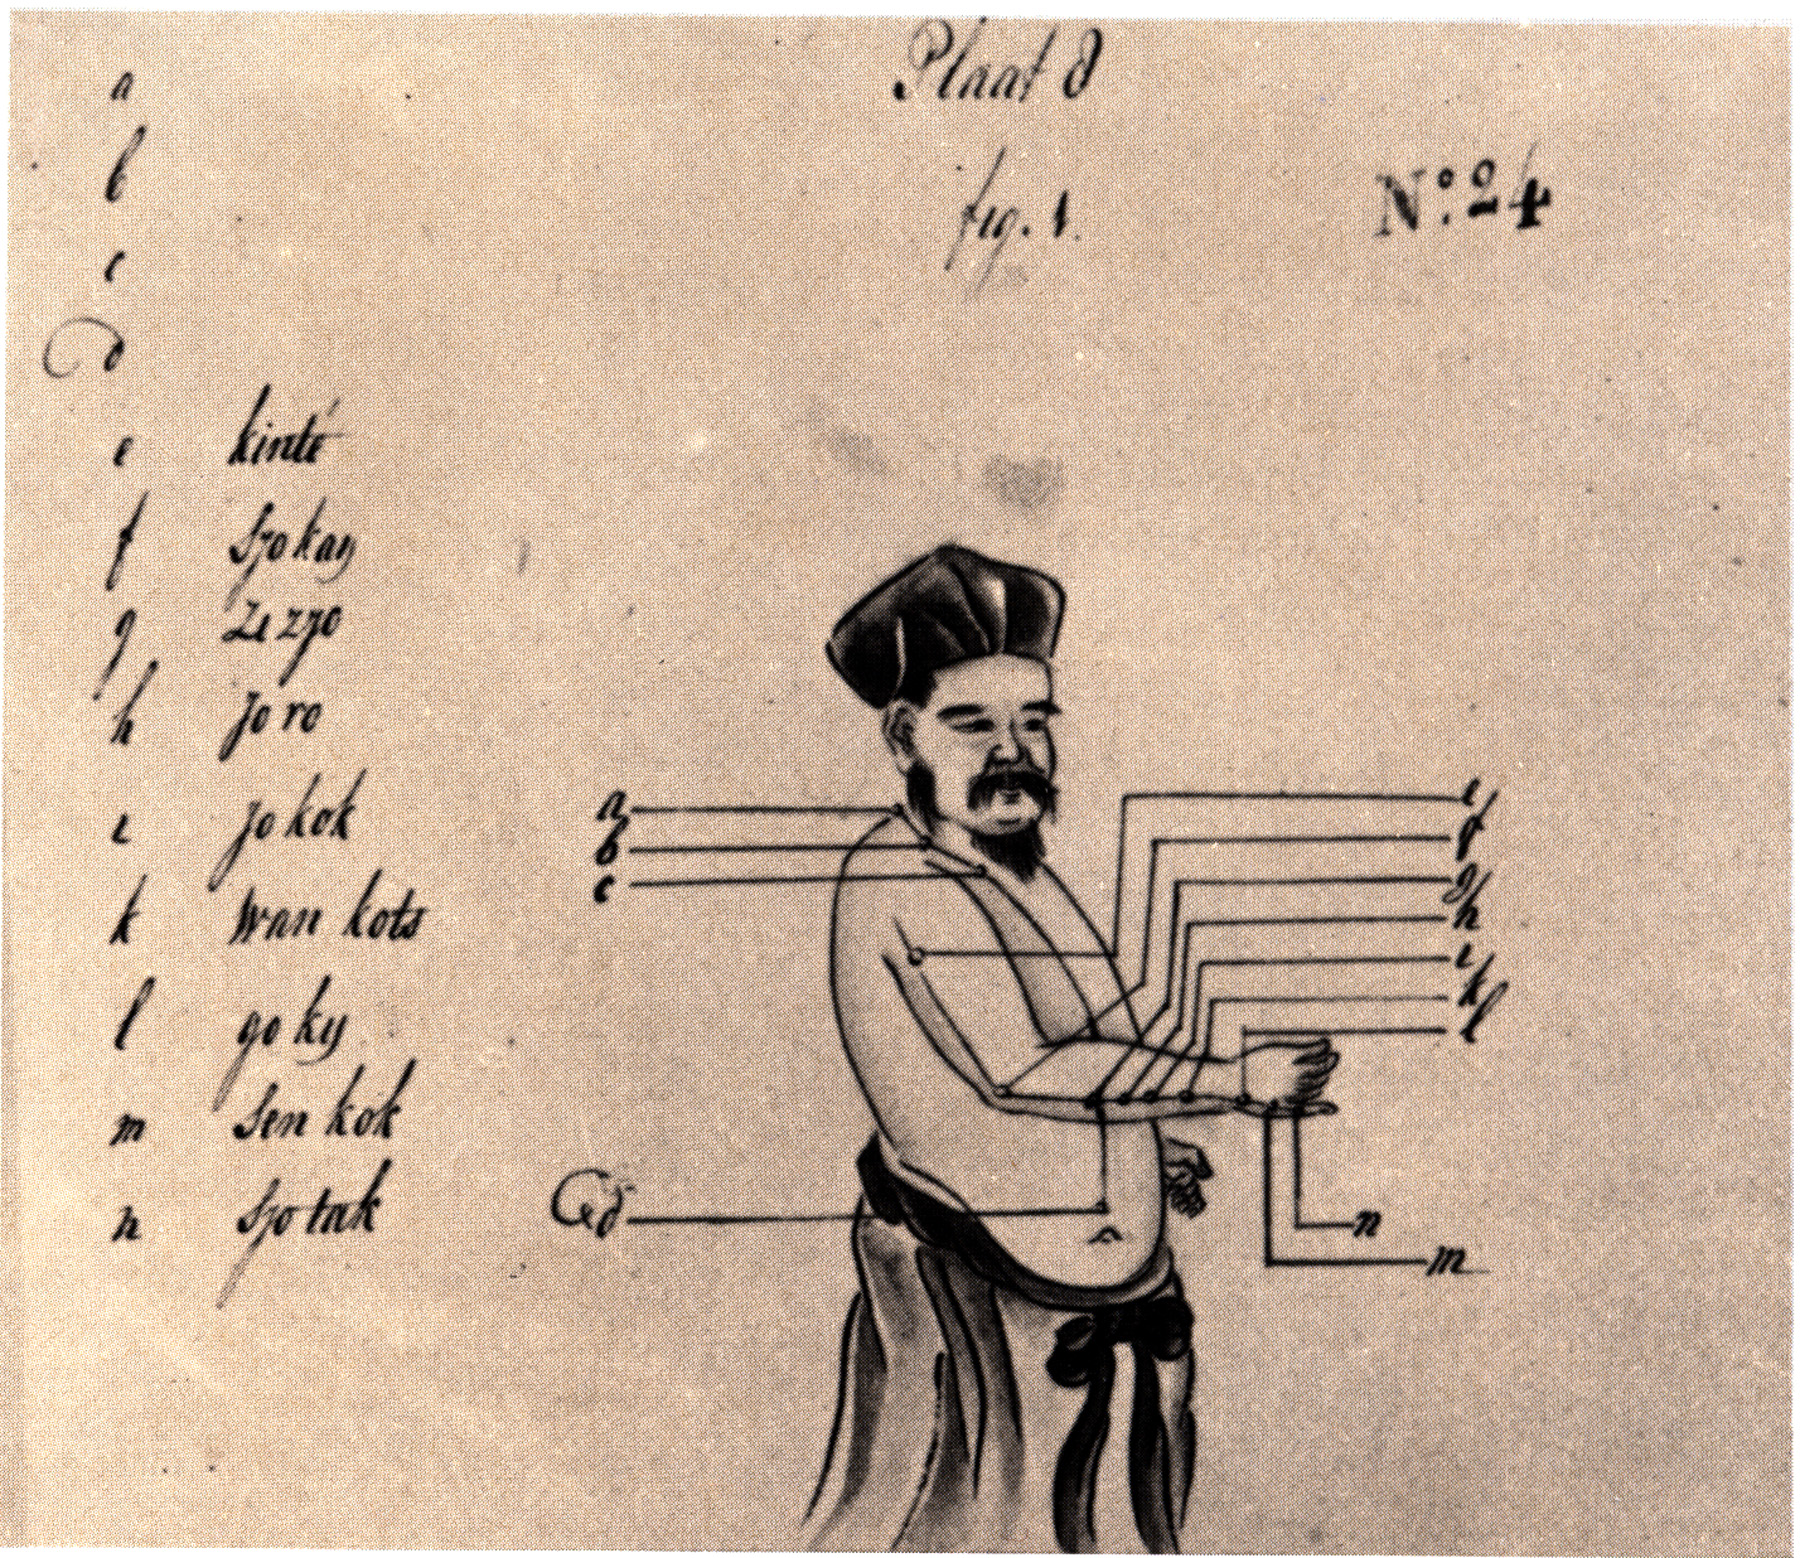 Plaat 8
fig. 1.
No. 24
a
b
c
d
e kinté
f Sjo kay
g Ze zjo
h Jo ro
i Jo kok
k Wan kots
l go ky
m Sen kok
n Sjo tak
a
b
c
d
e
f
g
h
i
k
l
n
m